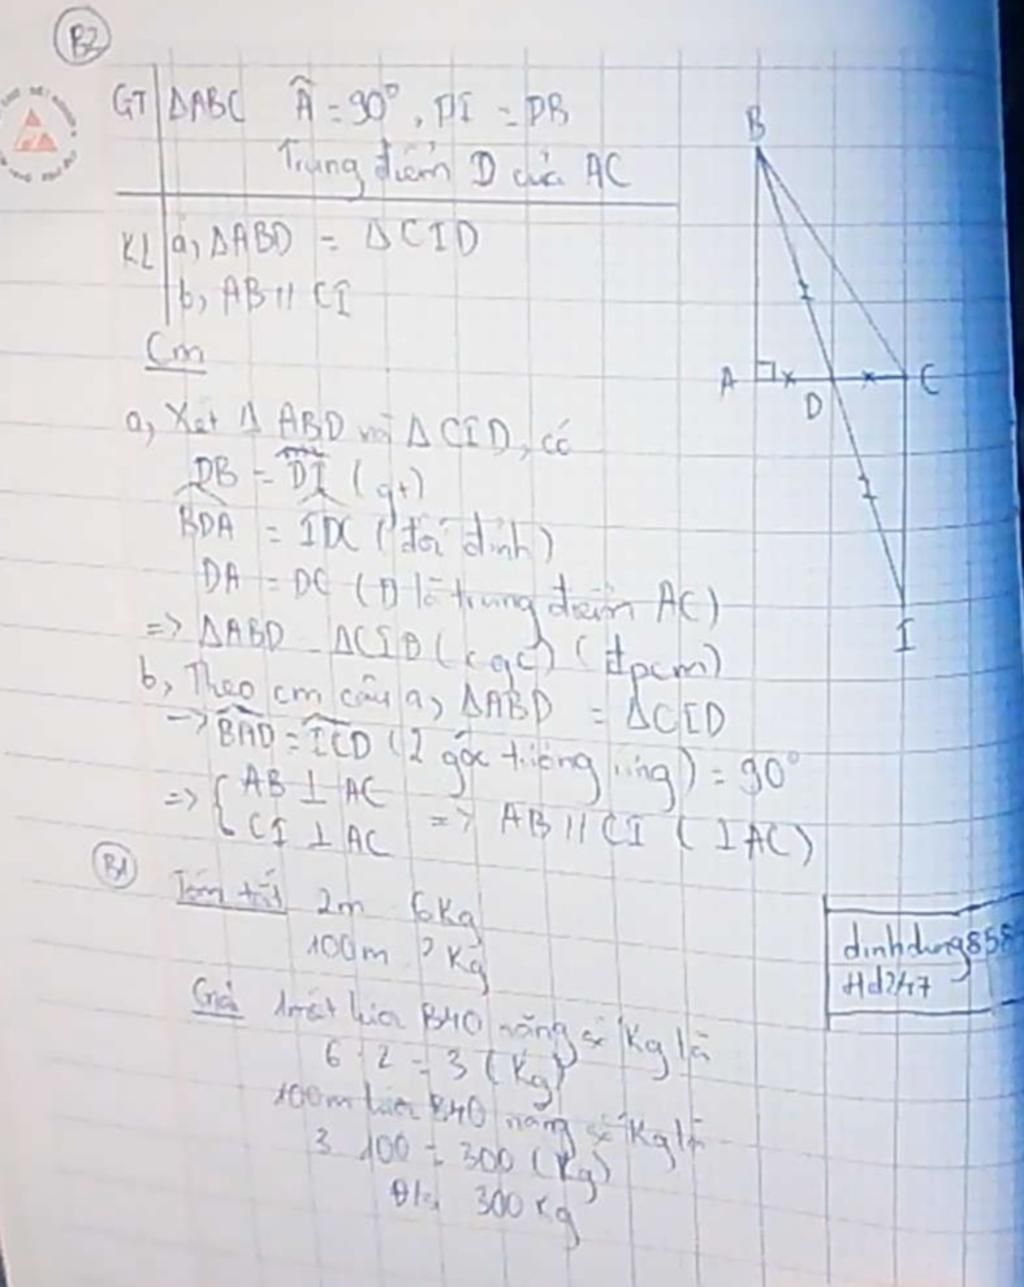 B2
GT ΔABC Â = 90°, DI = DB
Trung điểm D của AC
KL a, ΔABD = ΔCID
b, AB // CI
Cm
a, Xét Δ ABD và ΔCID, có
DB = DI (gt)
BDA = IDC (đối đỉnh)
DA = DC (D là trung điểm AC)
=> ΔABD = ΔCID (cgc) (đpcm)
b, Theo cm câu a, ΔABD = ΔCID
-> BAD = ICD (2 góc tương ứng) = 90°
=> { AB ⊥ AC
CI ⊥ AC => AB // CI (⊥ AC)
B
A
D
C
I
B1
Tóm tắt 2m 6Kg
100m ? Kg
Giải 1 mét lưới B40 nặng số Kg là
6 : 2 = 3 (Kg)
100m lưới B40 nặng số Kg là
3 . 100 = 300 (Kg)
Đ/s 300 Kg
dinhdung858
Hd247